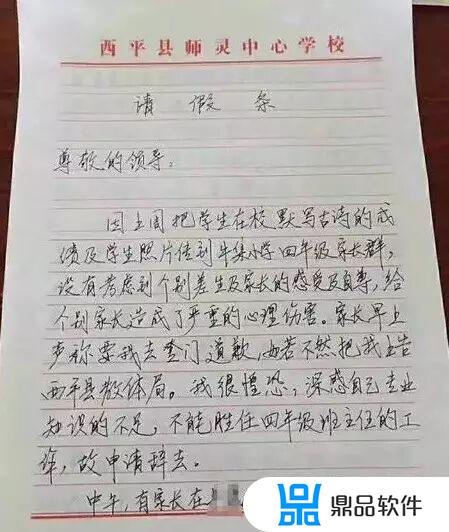 西平县师灵中心学校
请假条
尊敬的领导：
因上周把学生在校默写古诗的成
绩及学生照片传到牛集小学四年级家长群，
没有考虑到个别差生及家长的感受及自尊，给
个别家长造成了严重的心理伤害。家长早上
声称要我去登门道歉，如若不然把我上告
西平县教体局。我很惶恐，深感自己专业
知识的不足，不能胜任四年级班主任的工
作，故申请辞去。
中午，有家长在
鼎品软件